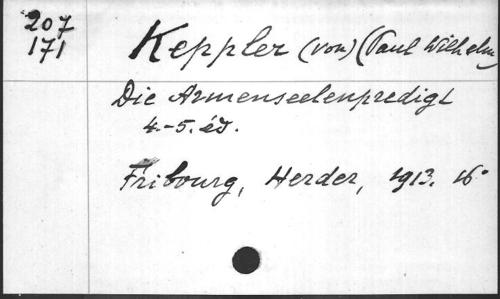 207
171
Keppler (von) (Paul Wilhelm
Die Armenseelenpredigt
4.-5. éd.
Fribourg, Herder, 1913. 16°